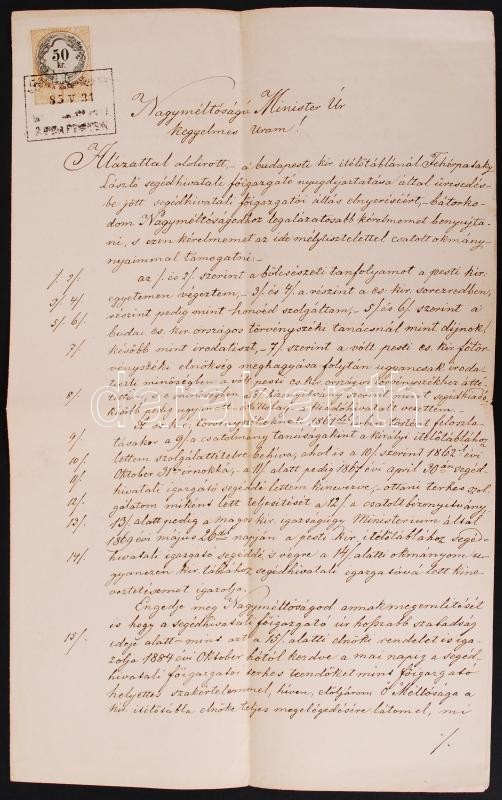 50
kr.
85 V 31
Nagyméltóságú Minister Úr
kegyelmes Uram!
Alázattal alólirott, – a budapesti kir. itélőtáblánál Fehérpataky
László segédhivatali főigazgató nyugdijaztatása által üresedés-
be jött segédhivatali főigazgatói állás elnyeréseért, – bátorko-
dom Nagyméltóságodhoz legalázatosabb kérelmemet benyujta-
ni, s ezen kérelmemet az ide mély tisztelettel csatolt okmány-
nyaimmal támogatni: –
1/. 2/. az 1/. és 2/. szerint a bölcsészeti tanfolyamot a pesti kir.
3/. 4/. egyetemen végeztem, – 3/. és 4/. a részint a cs. kir. sorezredben,
részint pedig mint honvéd szolgáltam, – 5/. és 6/. szerint a
5/. 6/. budai cs. kir. országos törvényszéki tanácsnál mint dijnok
7/. később mint irodatiszt, – 7/. szerint a volt pesti cs. kir. főtör-
vényszéki elnökség meghagyása folytán ugyancsak iroda-
tiszti minőségben a volt pesti cs. kir. országos törvényszékhez átté-
8/.
9/. tásakor a 9/. a csatolmány tanuságaként a királyi itélőtáblához
lettem szolgálattételre behiva, ahol is a 10/. szerint 1862 évi
10/. Oktober 31-én irnokká, – a 11/. alatt pedig 1867 évi april 30án segéd-
11/. hivatali igazgató segéddé lettem kinevezve, – ottani terhes szol-
12/. gálatom miként lett teljesitését a 12/. a csatolt bizonyitvány
13/. 13/. alatt pedig a magy. kir. igazságügy Ministerium által
1869 évi május 26dik napján a pesti kir. itélőtáblához segé-
14/. hivatali igazgató segéddé, s végre a 14/. alatti okmányom u-
gyanezen kir. táblához segédhivatali igazgatóvá lett kine-
veztetésemet igazolja.
Engedje meg Nagyméltóságod annak megemlitését
is hogy a segédhivatali főigazgató úr hosszabb szabadság
15/. ideje alatt – mint azt a 15/. alatti elnöki rendelet is iga-
zolja 1884 évi Oktober hótól kezdve a mai napig a segéd-
hivatali főigazgatói terhes teendőket mint főigazgató
helyettes szakértelemmel, hiven, eljárom Ő Méltósága a
kir. itélőtábla elnöke teljes megelégedésére látom el, mi
./.